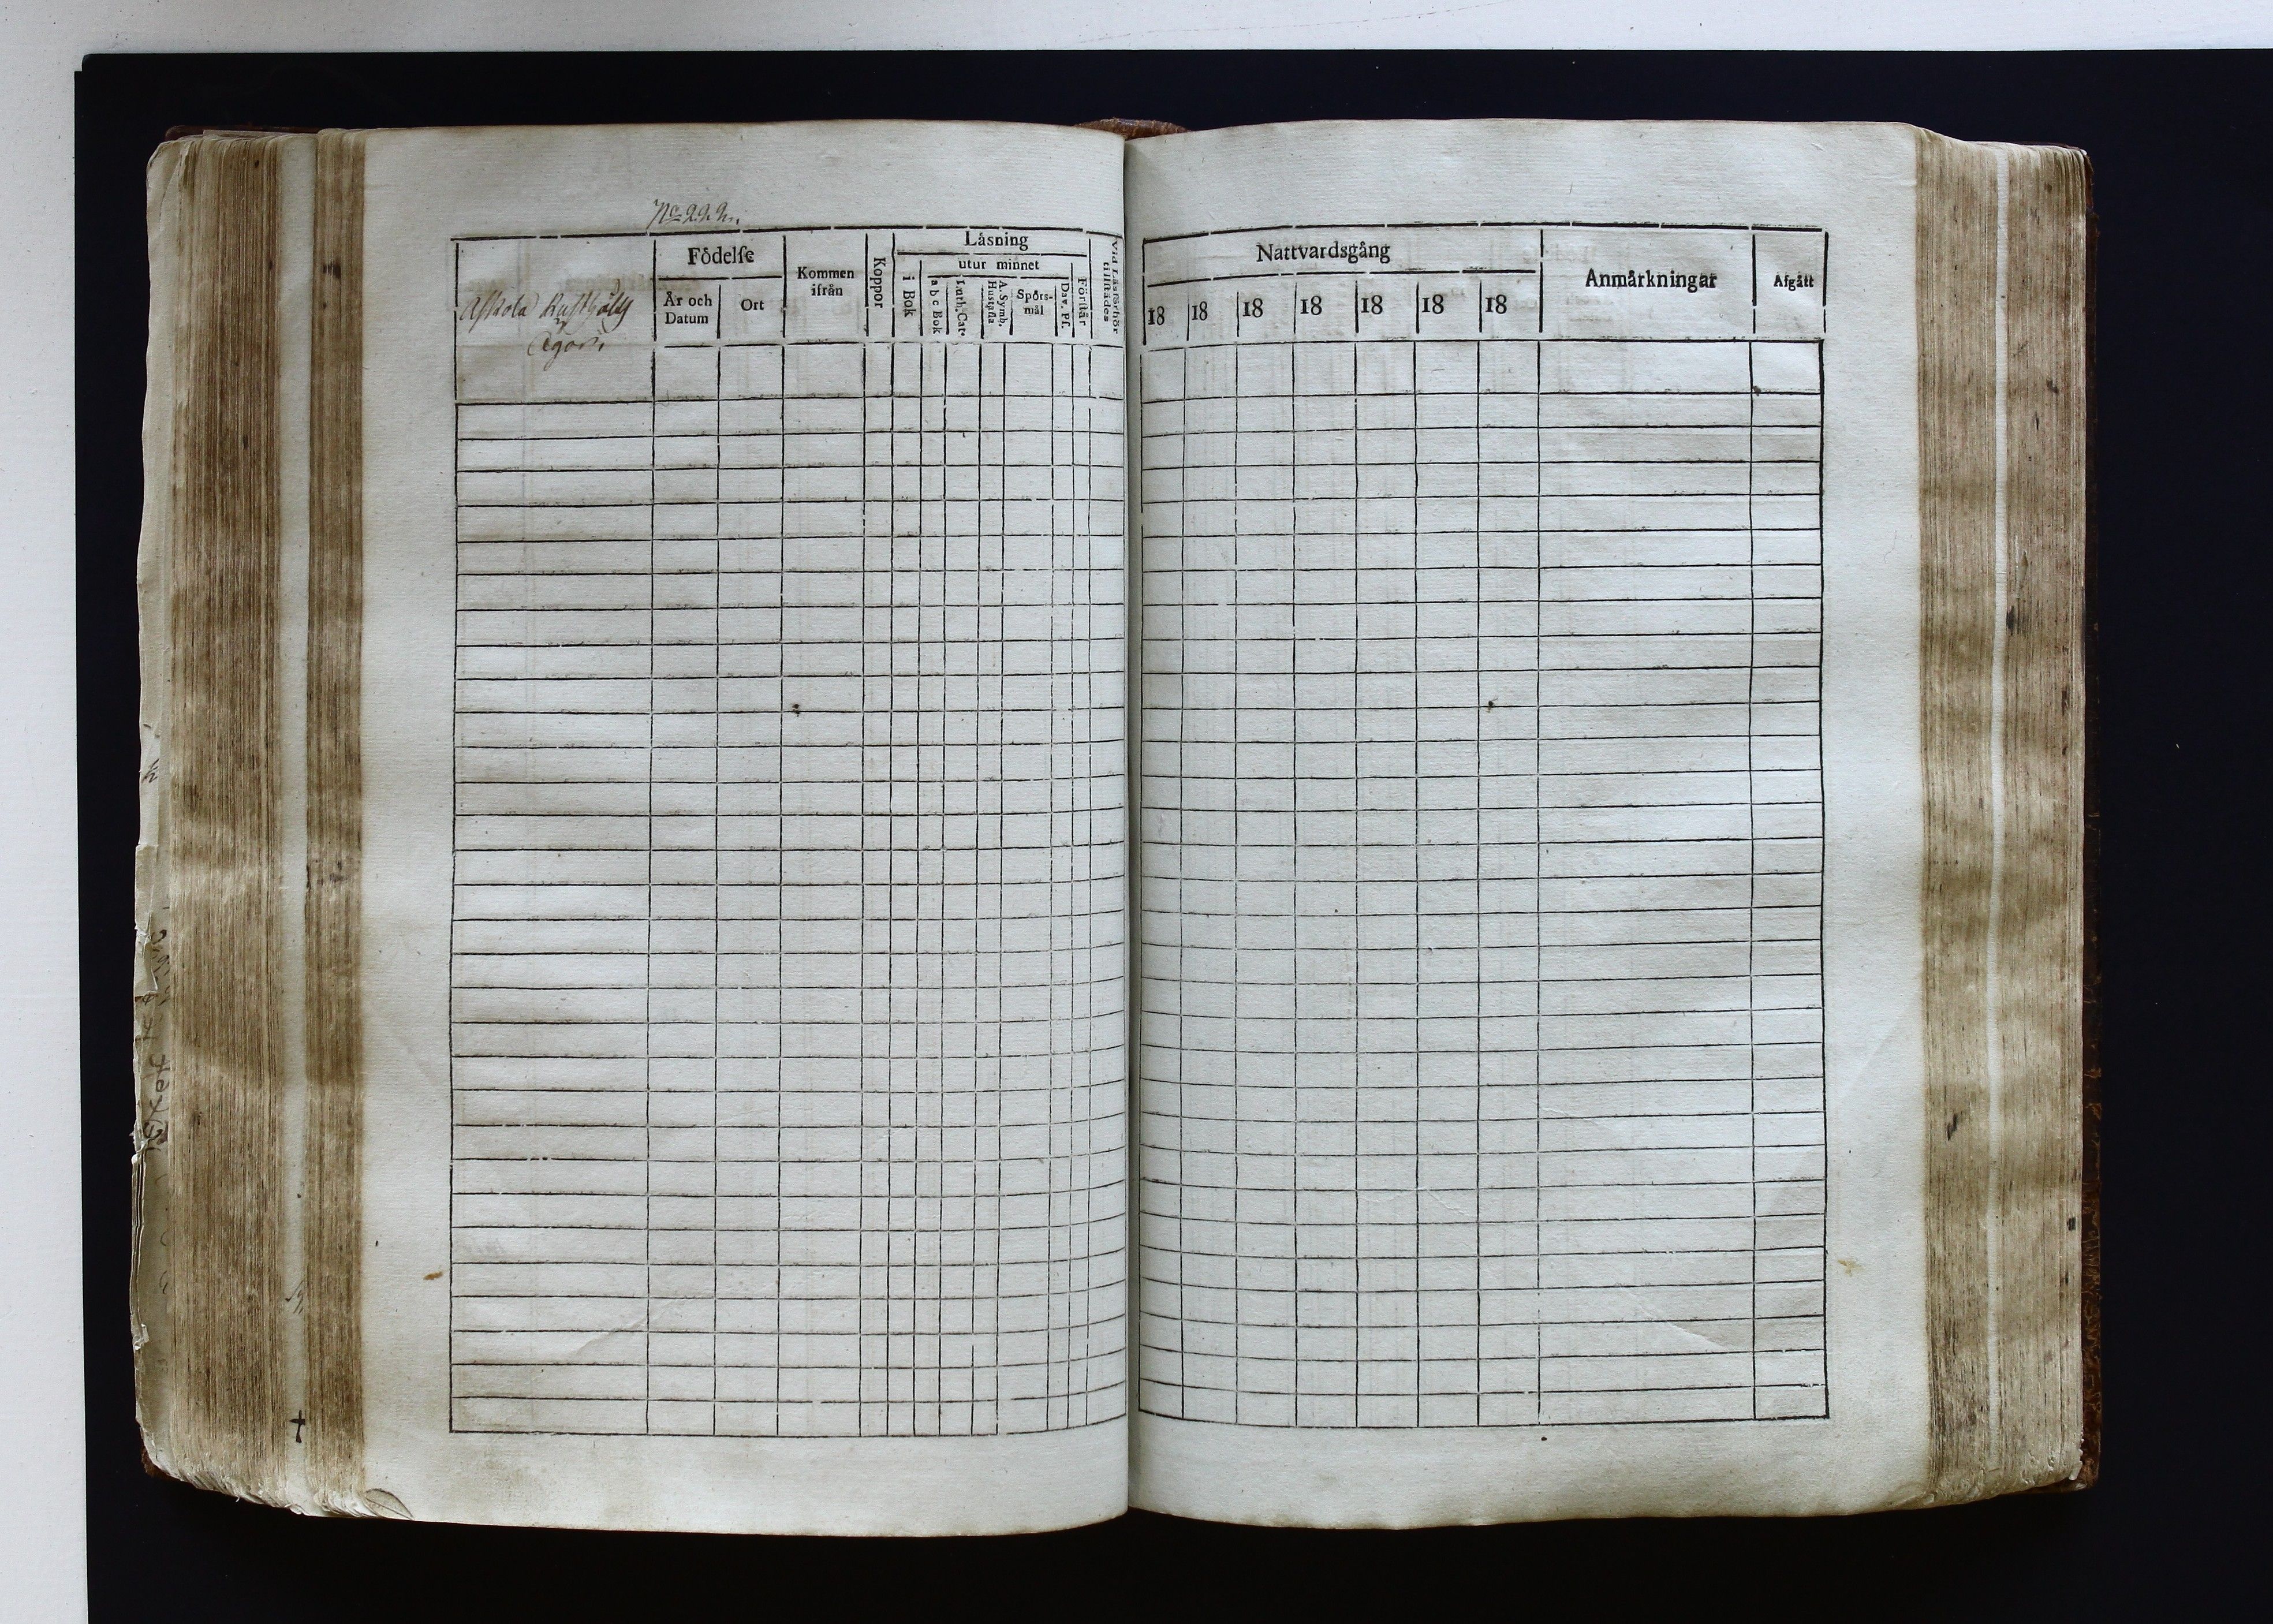 No 222.
Askola Rusthålls
Egor
Födelse
År och
Datum
Ort
Kommen
ifrån
Koppor
Läsning
i Bok
utur minnet
a b c Bok
Luth. Cat.
A. Symb.
Hustafla
Spörs-
mål
Dav. Ps.
Förstår
Vid Läsförhör
tillstädes
Nattvardsgång
18 18 18 18 18 18 18
Anmärkningar
Afgått